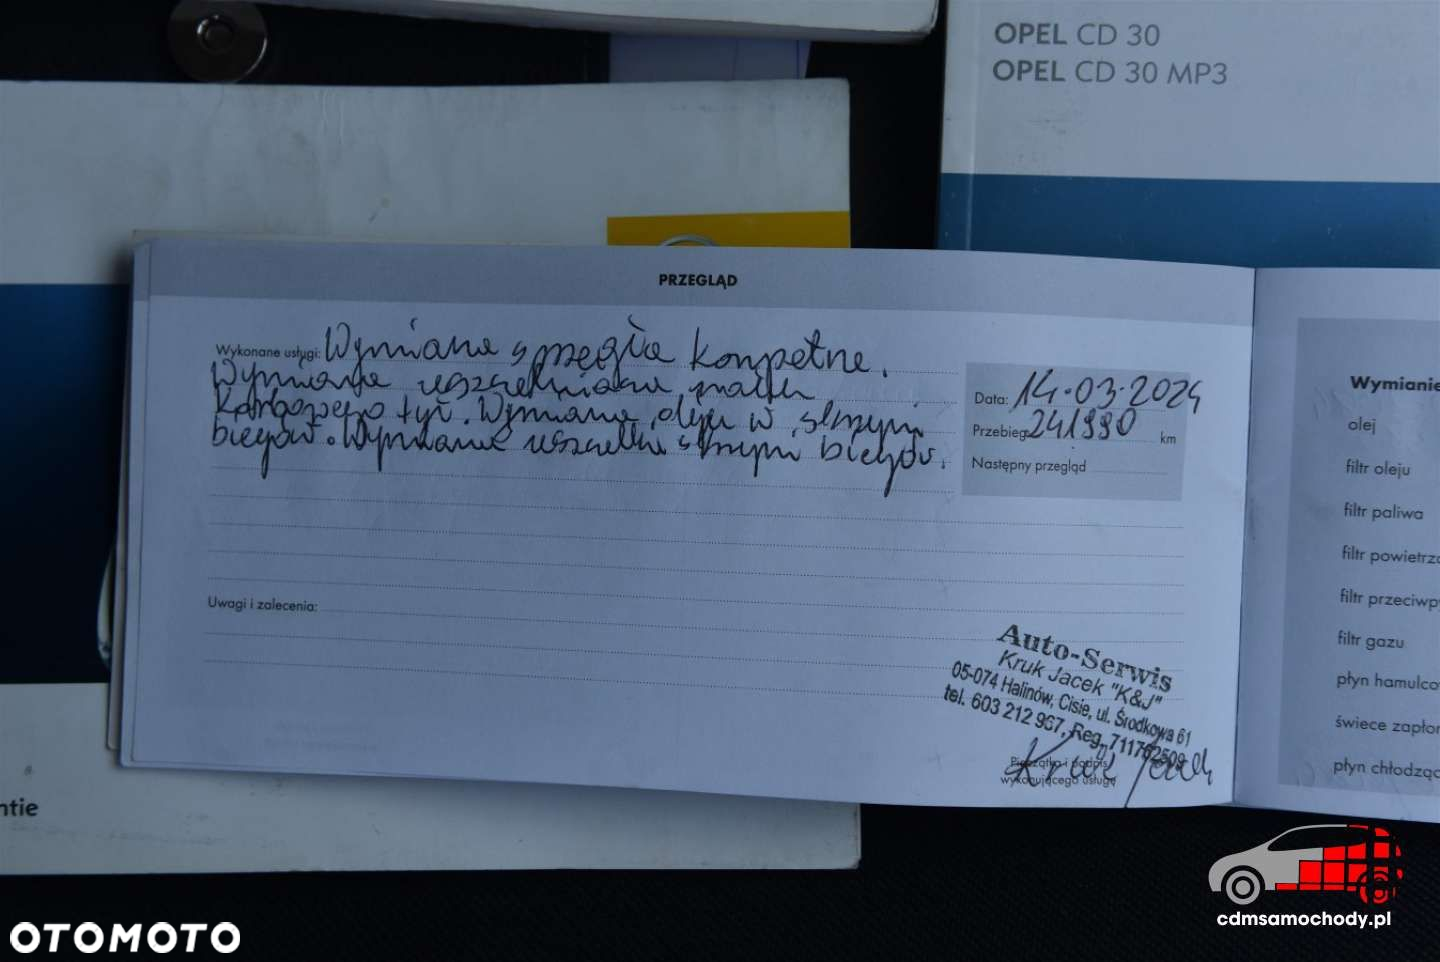 OPEL CD 30
OPEL CD 30 MP3
PRZEGLĄD
Wykonane usługi: Wymiana sprzęgła kompetne.
Wymiana uszczelniacza wałka
Korbowego tył. Wymiana oleju w skrzyni
biegów. Wymiana uszczelki skrzyni biegów.
Data: 14.03.2024
Przebieg 241990 km
Następny przegląd
Uwagi i zalecenia:
Auto-Serwis
Kruk Jacek "K&J"
05-074 Halinów, Cisie, ul. Środkowa 61
tel. 603 212 967, Reg. 711762509
Pieczątka i podpis
wykonującego usługę
Kruk Jacek
Wymianie
olej
filtr oleju
filtr paliwa
filtr powietrza
filtr przeciwpy
filtr gazu
płyn hamulco
świece zapłon
płyn chłodząc
ntie
OTOMOTO
cdmsamochody.pl